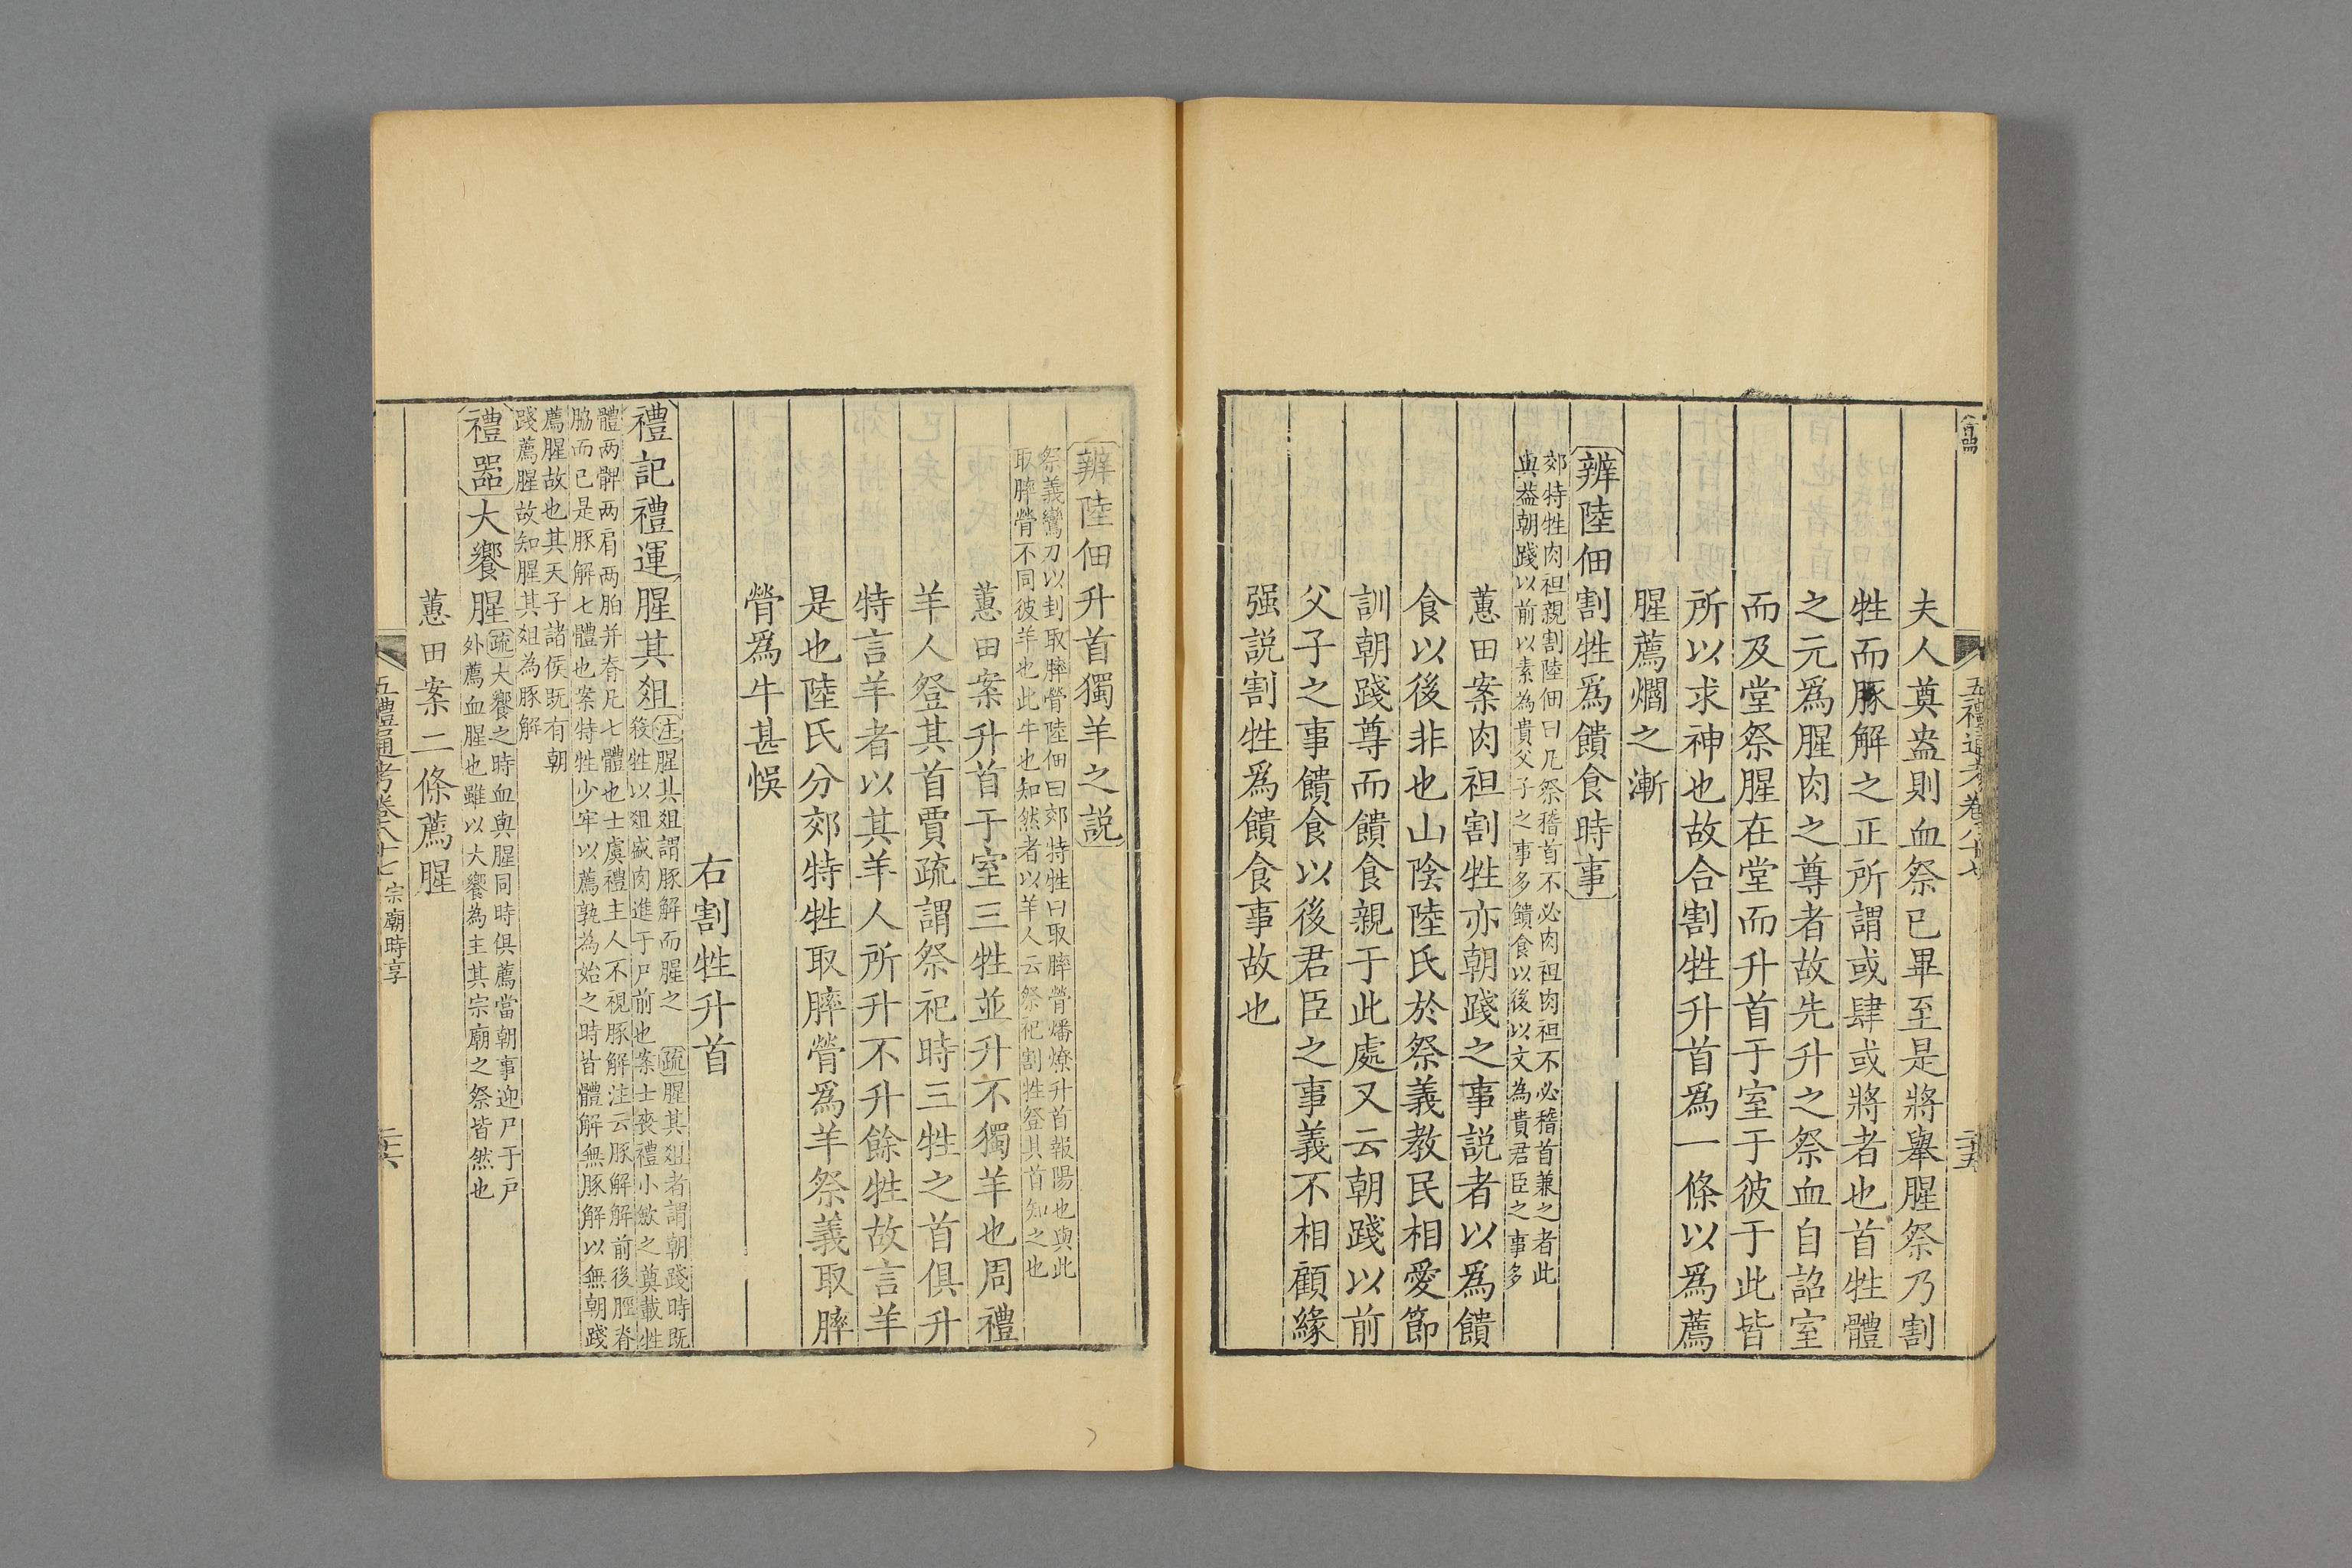 五禮通考卷八十七
二十五
夫人奠盎則血祭已畢至是將舉腥祭乃割
牲而豚解之正所謂或肆或將者也首牲體
之元爲腥肉之尊者故先升之祭血自詔室
而及堂祭腥在堂而升首于室于彼于此皆
所以求神也故合割牲升首爲一條以爲薦
腥薦爓之漸
辨陸佃割牲爲饋食時事
郊特牲肉袒親割陸佃曰凡祭稽首不必肉袒肉袒不必稽首兼之者此
與葢朝踐以前以素為貴父子之事多饋食以後以文為貴君臣之事多
蕙田案肉袒割牲亦朝踐之事説者以爲饋
食以後非也山陰陸氏於祭義教民相愛節
訓朝踐尊而饋食親于此處又云朝踐以前
父子之事饋食以後君臣之事義不相顧緣
强説割牲爲饋食事故也
辨陸佃升首獨羊之説
祭義鸞刀以刲取膟膋陸佃曰郊特牲曰取膟膋燔燎升首報陽也與此
取膟膋不同彼羊也此牛也知然者以羊人云祭祀割牲登其首知之也
蕙田案升首于室三牲並升不獨羊也周禮
羊人登其首賈疏謂祭祀時三牲之首俱升
特言羊者以其羊人所升不升餘牲故言羊
是也陸氏分郊特牲取膟膋爲羊祭義取膟
膋爲牛甚悞
右割牲升首
禮記禮運腥其俎
注腥其俎謂豚解而腥之
疏腥其俎者謂朝踐時既
殺牲以俎盛肉進于尸前也案士喪禮小斂之奠載牲
體两髀两肩两胉并脊凡七體也士虞禮主人不視豚解注云豚解解前後脛脊
脇而已是豚解七體也案特牲少牢以薦孰為始之時皆體解無豚解以無朝踐
薦腥故也其天子諸侯既有朝
踐薦腥故知腥其俎為豚解
禮器大饗腥
疏大饗之時血與腥同時俱薦當朝事迎尸于戸
外薦血腥也雖以大饗為主其宗廟之祭皆然也
蕙田案二條薦腥
五禮通考卷八十七
宗廟時享
二十六